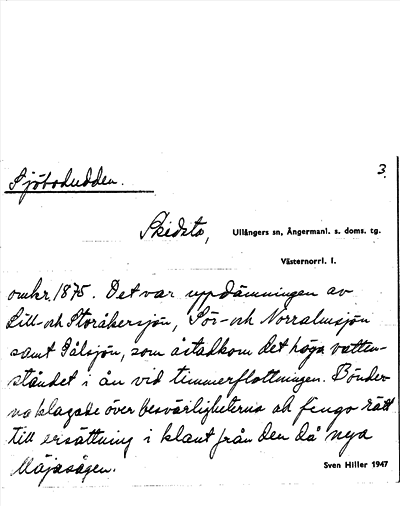 Sjöbodudden.
3.
Skidsta,
Ullångers sn, Ångermanl. s. doms. tg.
Västernorrl. l.
omkr. 1875. Det var uppdämningen av
Lill- och Storåkersjön, Sör- och Norralmsjön
samt Gålsjön, som åstadkom det höga vatten-
ståndet i ån vid timmerflottningen. Bönder-
na klagade över besvärligheterna och fingo rätt
till ersättning i klant från den då nya
Mäjasågen.
Sven Hiller 1947